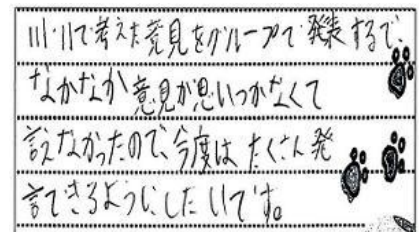 川・川で考えた意見をグループで発表するで、
なかなか意見が思いつかなくて
言えなかったので、今度はたくさん発
言できるようにしたいです。